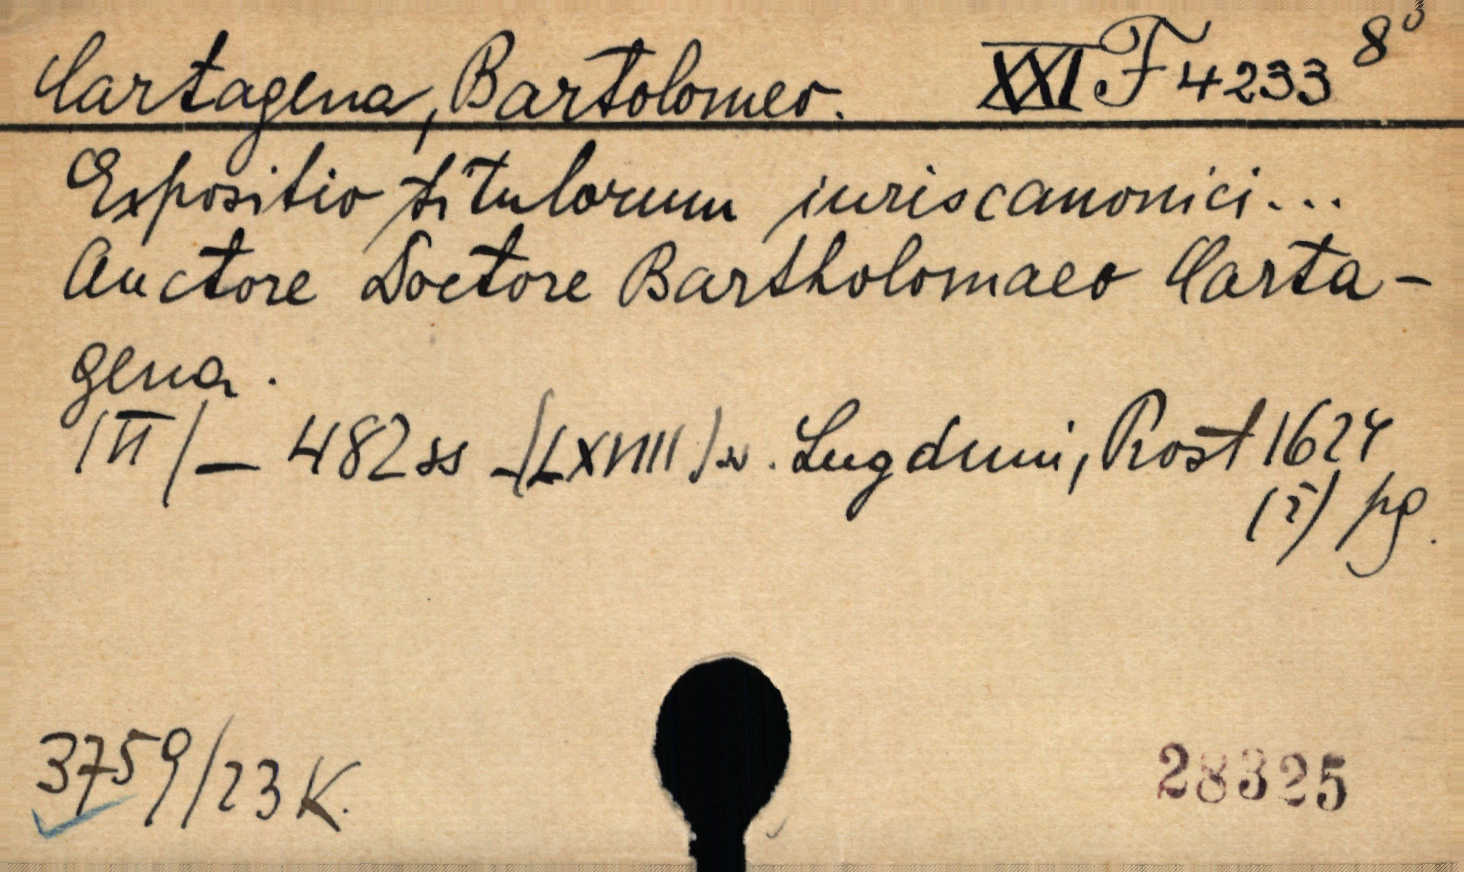 Cartagena, Bartolomeo. XXI F 4233 8°
Expositio titulorum iuris canonici...
Auctore Doctore Bartholomaeo Carta-
gena.
/III/ — 482 ss - /LXVIII/ s. Lugduni, Rost 1624
(i) pg.
3759/23 K.
28325